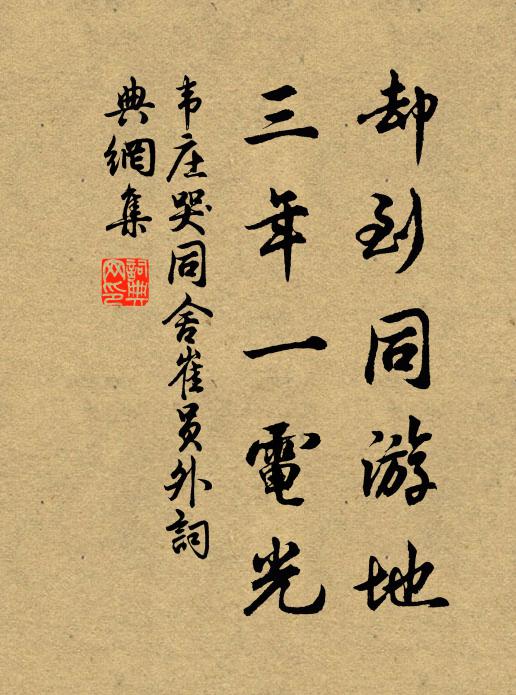 却到同游地
三年一電光
韦庄哭同舍崔员外詞
典網集
詞典
网印